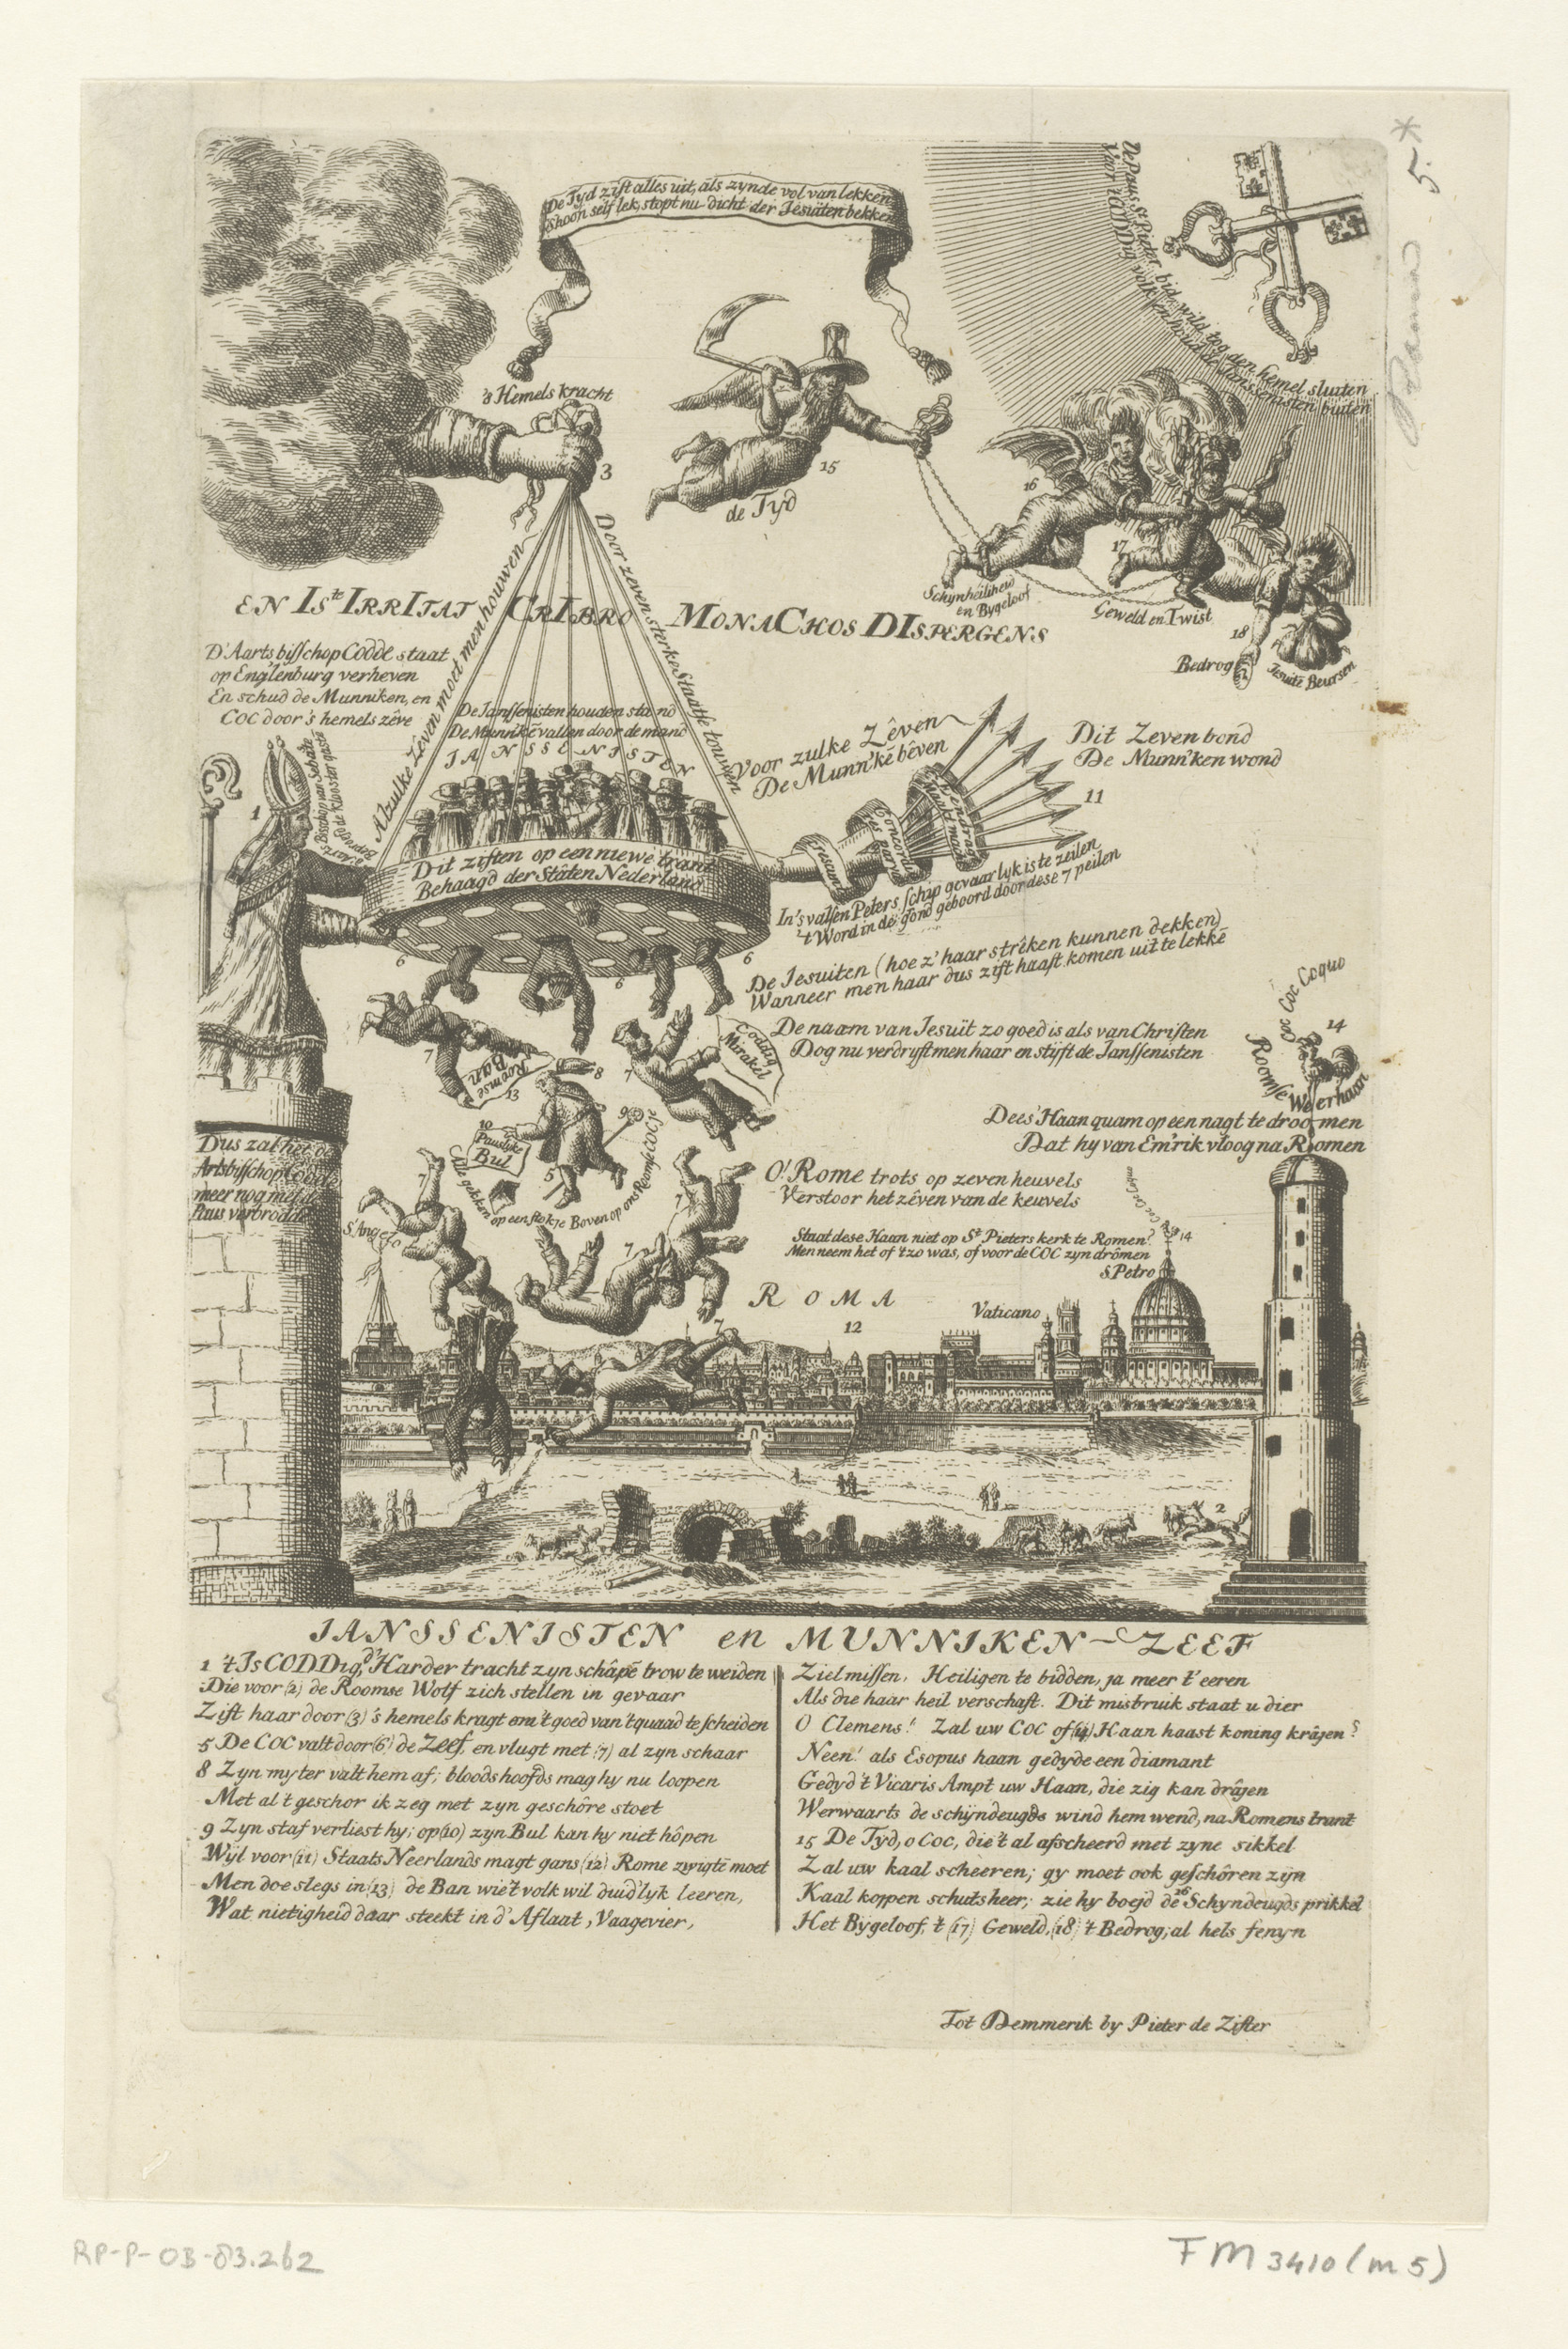 De Tyd zift alles uit, als zynde vol van lekken
schoon self lek, stopt nu dicht der Jesuiten bekken
De Paus St Pieter bid, wild tog den hemel sluiten
's Hemels kracht
3
15
de Tyd
16
17
Schynheiliheid
en Bygeloof
Geweld en Twist
18
Bedrog
Jesuite Beursen
Alzulke Zêven moet men houwen
Door zeven sterke Staatse touwen
EN ISte IRRITAT CRIBRO MONACHOS DISPERGENS
D'Aartsbisschop Codde staat
op Englenburg verheven
En schud de Munniken, en
COC door's hemels zêve
De Janssenisten houden stand
De Munnikē vallen door de mand
JANSSENISTEN
Voor zulke Zêven
De Munn'kē bêven
Dit Zeven bond
De Munn'ken wond
11
1
Dit ziften op een niewe trant
Behaagd der Stâten Nederland
Concordia
res parvæ
crescunt
Eendragt
maakt magt
In's valsen Peters schip gevaarlyk is te zeilen
't Word in de grond geboord door dese 7 peilen
6
6
6
De Jesuiten (hoe z' haar strêken kunnen dekken)
Wanneer men haar dus zift haast komen uit te lekkē
De naam van Jesuït zo goed is als van Christen
Dog nu verdryft men haar en styft de Janssenisten
7
Roomse
Ban
13
7
Coddig
Mirakel
8
9
10
Pauslyke
Bul
5
Alle gekken op een stokje Boven op ons Romse COCje
Coc Coc Coquo
14
Roomse Weerhaan
Dees' Haan quam op een nagt te droomen
Dat hy van Em'rik vloog na Roomen
Dus zat het
Artsbisschop Codde
meer nog met de
Paus verbrodde
7
S. Angelo
7
7
O! Rome trots op zeven heuvels
Verstoor het zêven van de keuvels
Staat dese Haan niet op St Pieters kerk te Romen?
Men neem het of 't zo was, of voor de COC zyn drômen
14
S. Petro
ROMA
12
Vaticano
7
2
JANSSENISTEN en MUNNIKEN-ZEEF
1 't Is CODDig, d' Harder tracht zyn schâpē trow te weiden
Die voor (2) de Roomse Wolf zich stellen in gevaar
Zift haar door (3) 's hemels kragt om 't goed van 't quaad te scheiden
5 De COC valt door (6) de Zeef, en vlugt met (7) al zyn schaar
8 Zyn myter valt hem af; bloods hoofds mag hy nu loopen
Met al 't geschor ik zeg met zyn geschôre stoet
9 Zyn staf verliest hy; op (10) zyn Bul kan hy niet hôpen
Wyl voor (11) Staats Neerlands magt gans (12) Rome zwigtē moet
Men doe slegs in (13) de Ban wie't volk wil duid'lyk leeren,
Wat nietigheid daar steekt in d' Aflaat, Vaagevier,
Zielmissen, Heiligen te bidden, ja meer t' eeren
Als die haar heil verschaft. Dit misbruik staat u dier
O Clemens! Zal uw COC of (14) Haan haast koning krâjen?
Neen! als Esopus haan gedyde een diamant
Gedyd 't Vicaris Ampt uw Haan, die zig kan drâjen
Werwaarts de schijndeugds wind hem wend, na Romens trant
15 De Tyd, o Coc, die 't al afscheerd met zyne sikkel
Zal uw kaal scheeren; gy moet ook geschôren zijn
Kaal koppen schutsheer; zie hy boejd de 16 Schyndeugds prikkel
Het Bygeloof, 't (17) Geweld, (18) 't Bedrog, al hels fenyn
Tot Demmerik by Pieter de Zifter
5.*
RP-P-OB-83.262
FM 3410 (m 5)